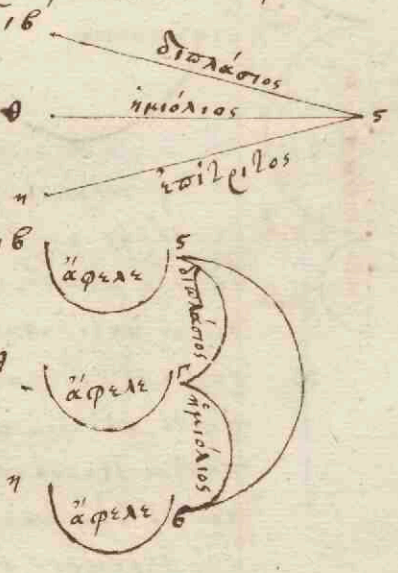 ιβ
διπλάσιος
θ ἡμιόλιος ϛ
η ἐπίτριτος
ιβ ἄφελε ϛ
διπλάσιος
θ ἄφελε γ
ἡμιόλιος
η ἄφελε β